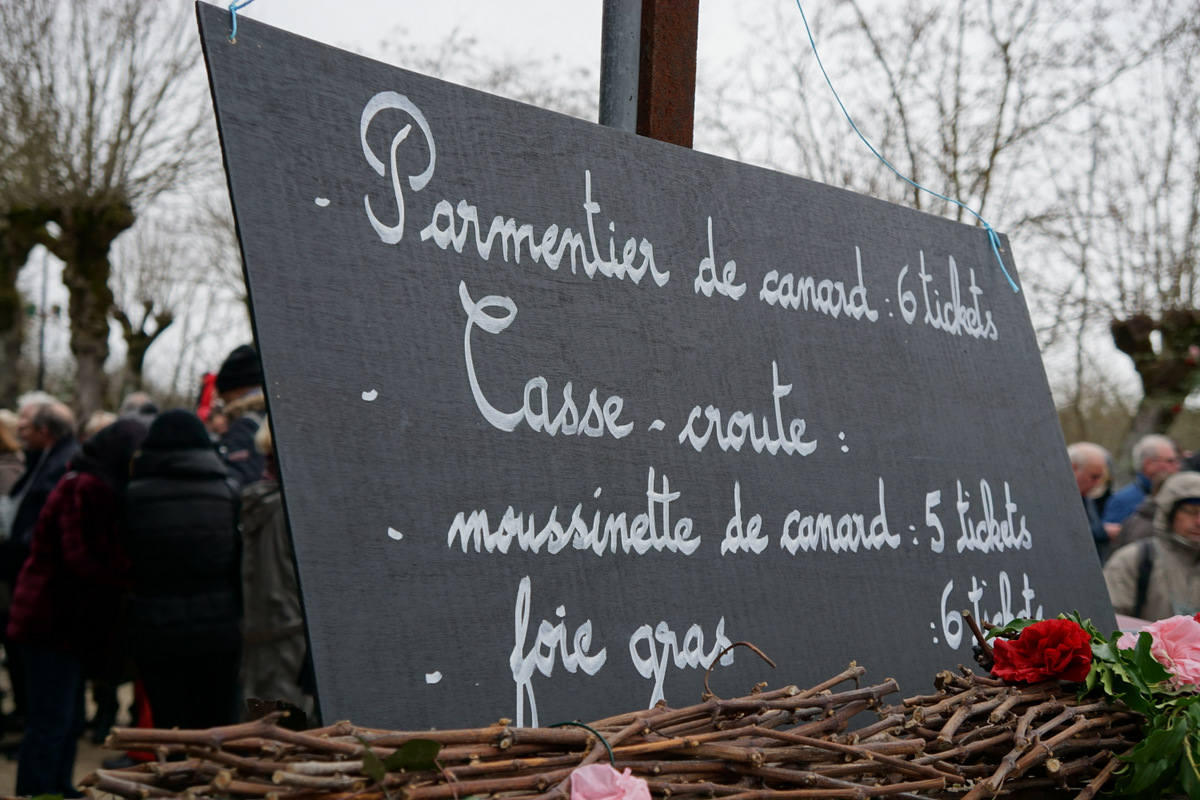 - Parmentier de canard : 6 tickets
- Casse-croute :
- moussinette de canard : 5 tickets
- foie gras : 6 tickets